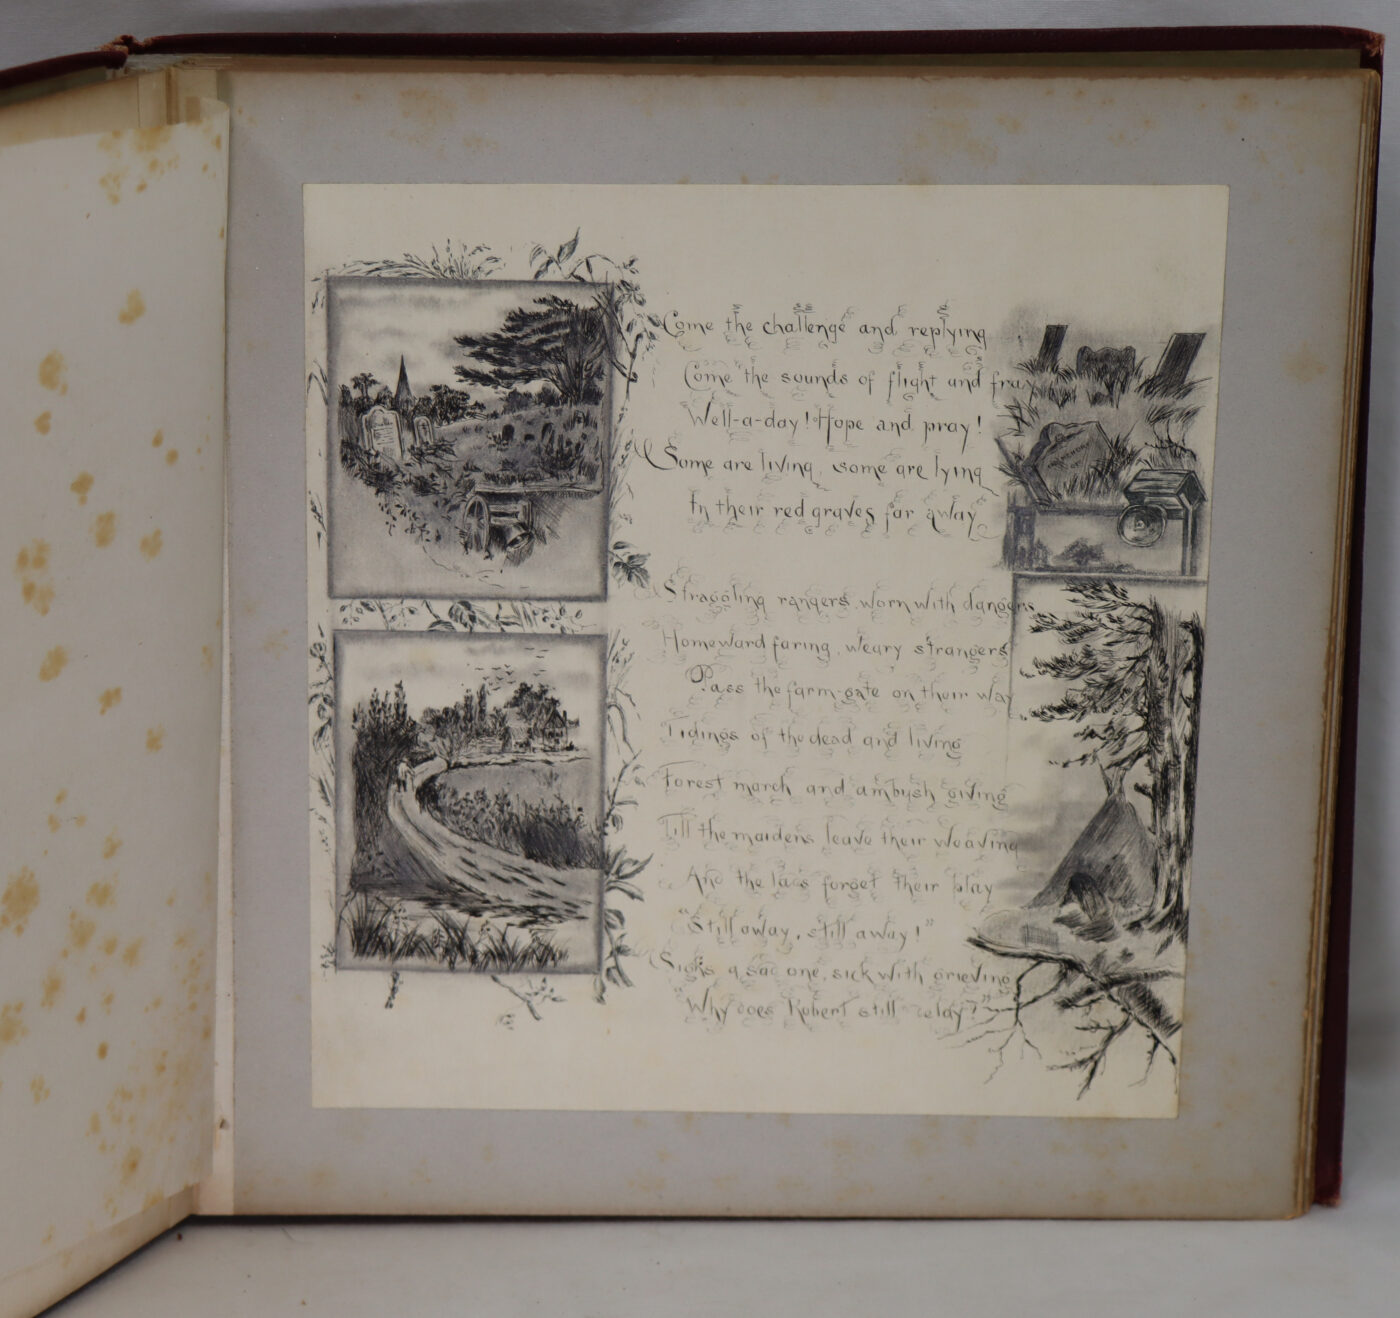 Come the challenge and replying
Come the sounds of flight and fray
Well-a-day! Hope and pray!
Some are living, some are lying
In their red graves far away
Straggling rangers, worn with dangers
Homeward faring, weary strangers
Pass the farm-gate on their way
Tidings of the dead and living
Forest march and ambush giving
Till the maidens leave their weaving
And the lads forget their play
"Still away, still away!"
Sighs a sad one, sick with grieving
Why does Robert still delay?"